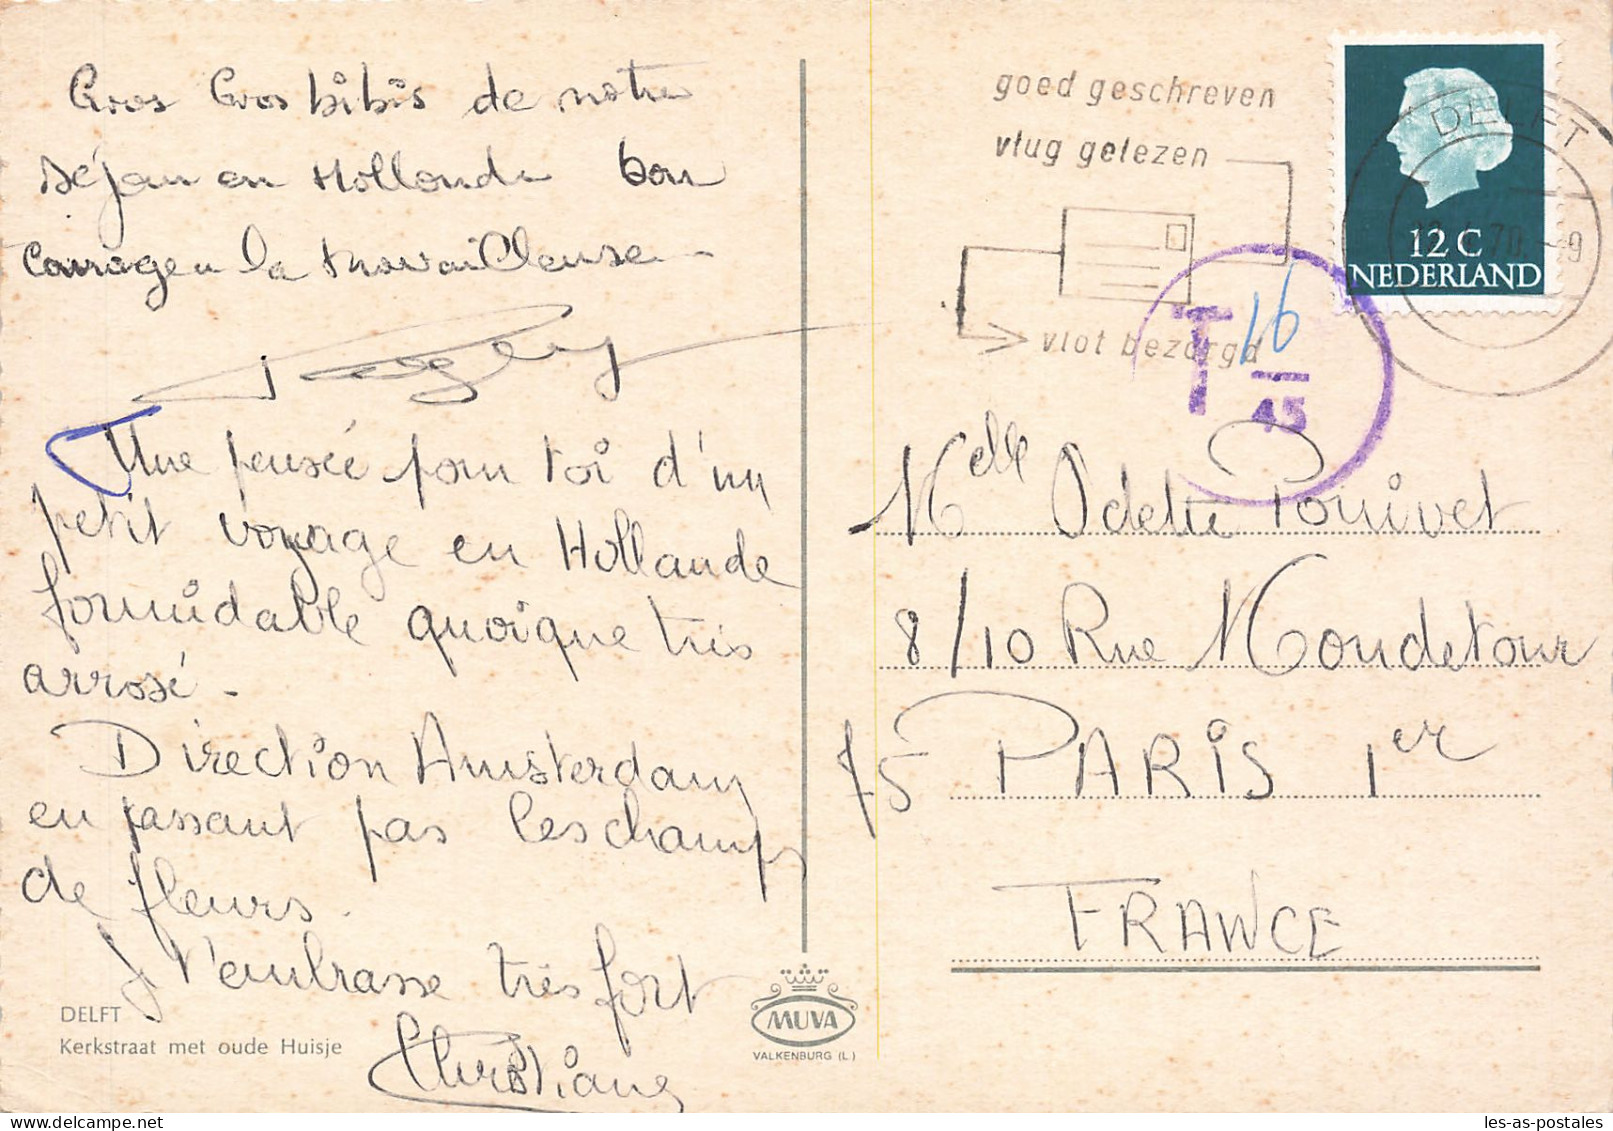 Gros Gros bibis de notre
séjour en Hollande bon
courage a la travailleuse -
Une pensée pour toi d'un
petit voyage en Hollande
formidable quoique très
arrosé -
Direction Amsterdam
en passant pas les champs
de fleurs.
J t'embrasse très fort
Christiane
DELFT
Kerkstraat met oude Huisje
MUVA
VALKENBURG (L.)
goed geschreven
vlug gelezen
vlot bezorgd
DELFT
12 70 - 9
12 C
NEDERLAND
T 16
45
Melle Odette Pouivet
8/10 Rue Mondetour
75 PARIS 1er
FRANCE
les-as-postales